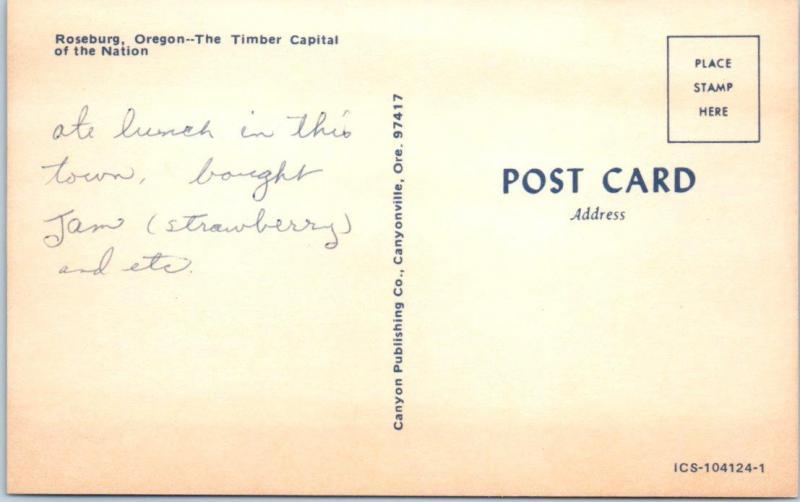 Roseburg, Oregon--The Timber Capital
of the Nation
ate lunch in this
town, bought
Jam (strawberry)
and etc.
Canyon Publishing Co., Canyonville, Ore. 97417
PLACE
STAMP
HERE
POST CARD
Address
ICS-104124-1